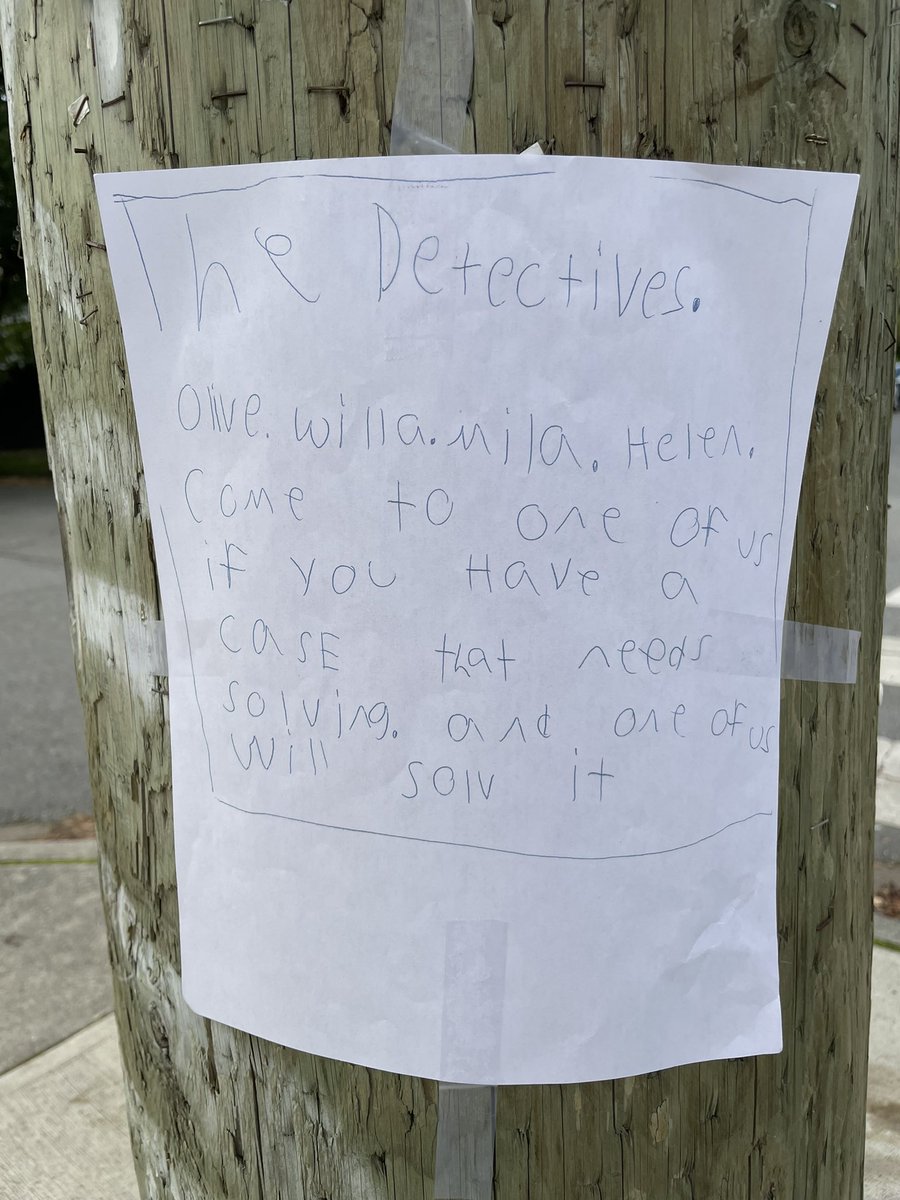 The Detectives.
Olive. Willa. Mila. Helen.
Come to one of us
if you Have a
CASE that needs
solving. and one of us
Will solv it